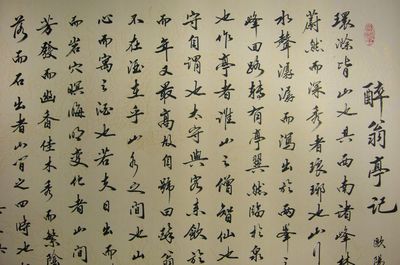 醉翁亭記
歐陽
環滁皆山也其西南諸峰林
蔚然而深秀者琅琊也山行
水聲潺潺而瀉出於兩峯之
峰回路轉有亭翼然臨於泉
也作亭者誰山之僧智仙也
守自謂也太守與客來飲於
而年又最高故自號曰醉翁
不在酒在乎山水之間也山
心而寓之酒也若夫日出而
而岩穴暝晦明變化者山間
芳發而幽香佳木秀而繁陰
落而石出者山間之四時也